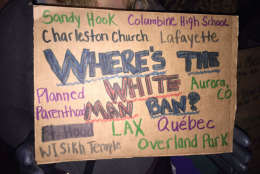 Sandy Hook Columbine High School
Charleston Church Lafayette
WHERE'S THE
WHITE
MAN BAN?
Aurora,
CO
Planned
Parenthood
Ft. Hood LAX Québec
WI Sikh Temple Overland Park